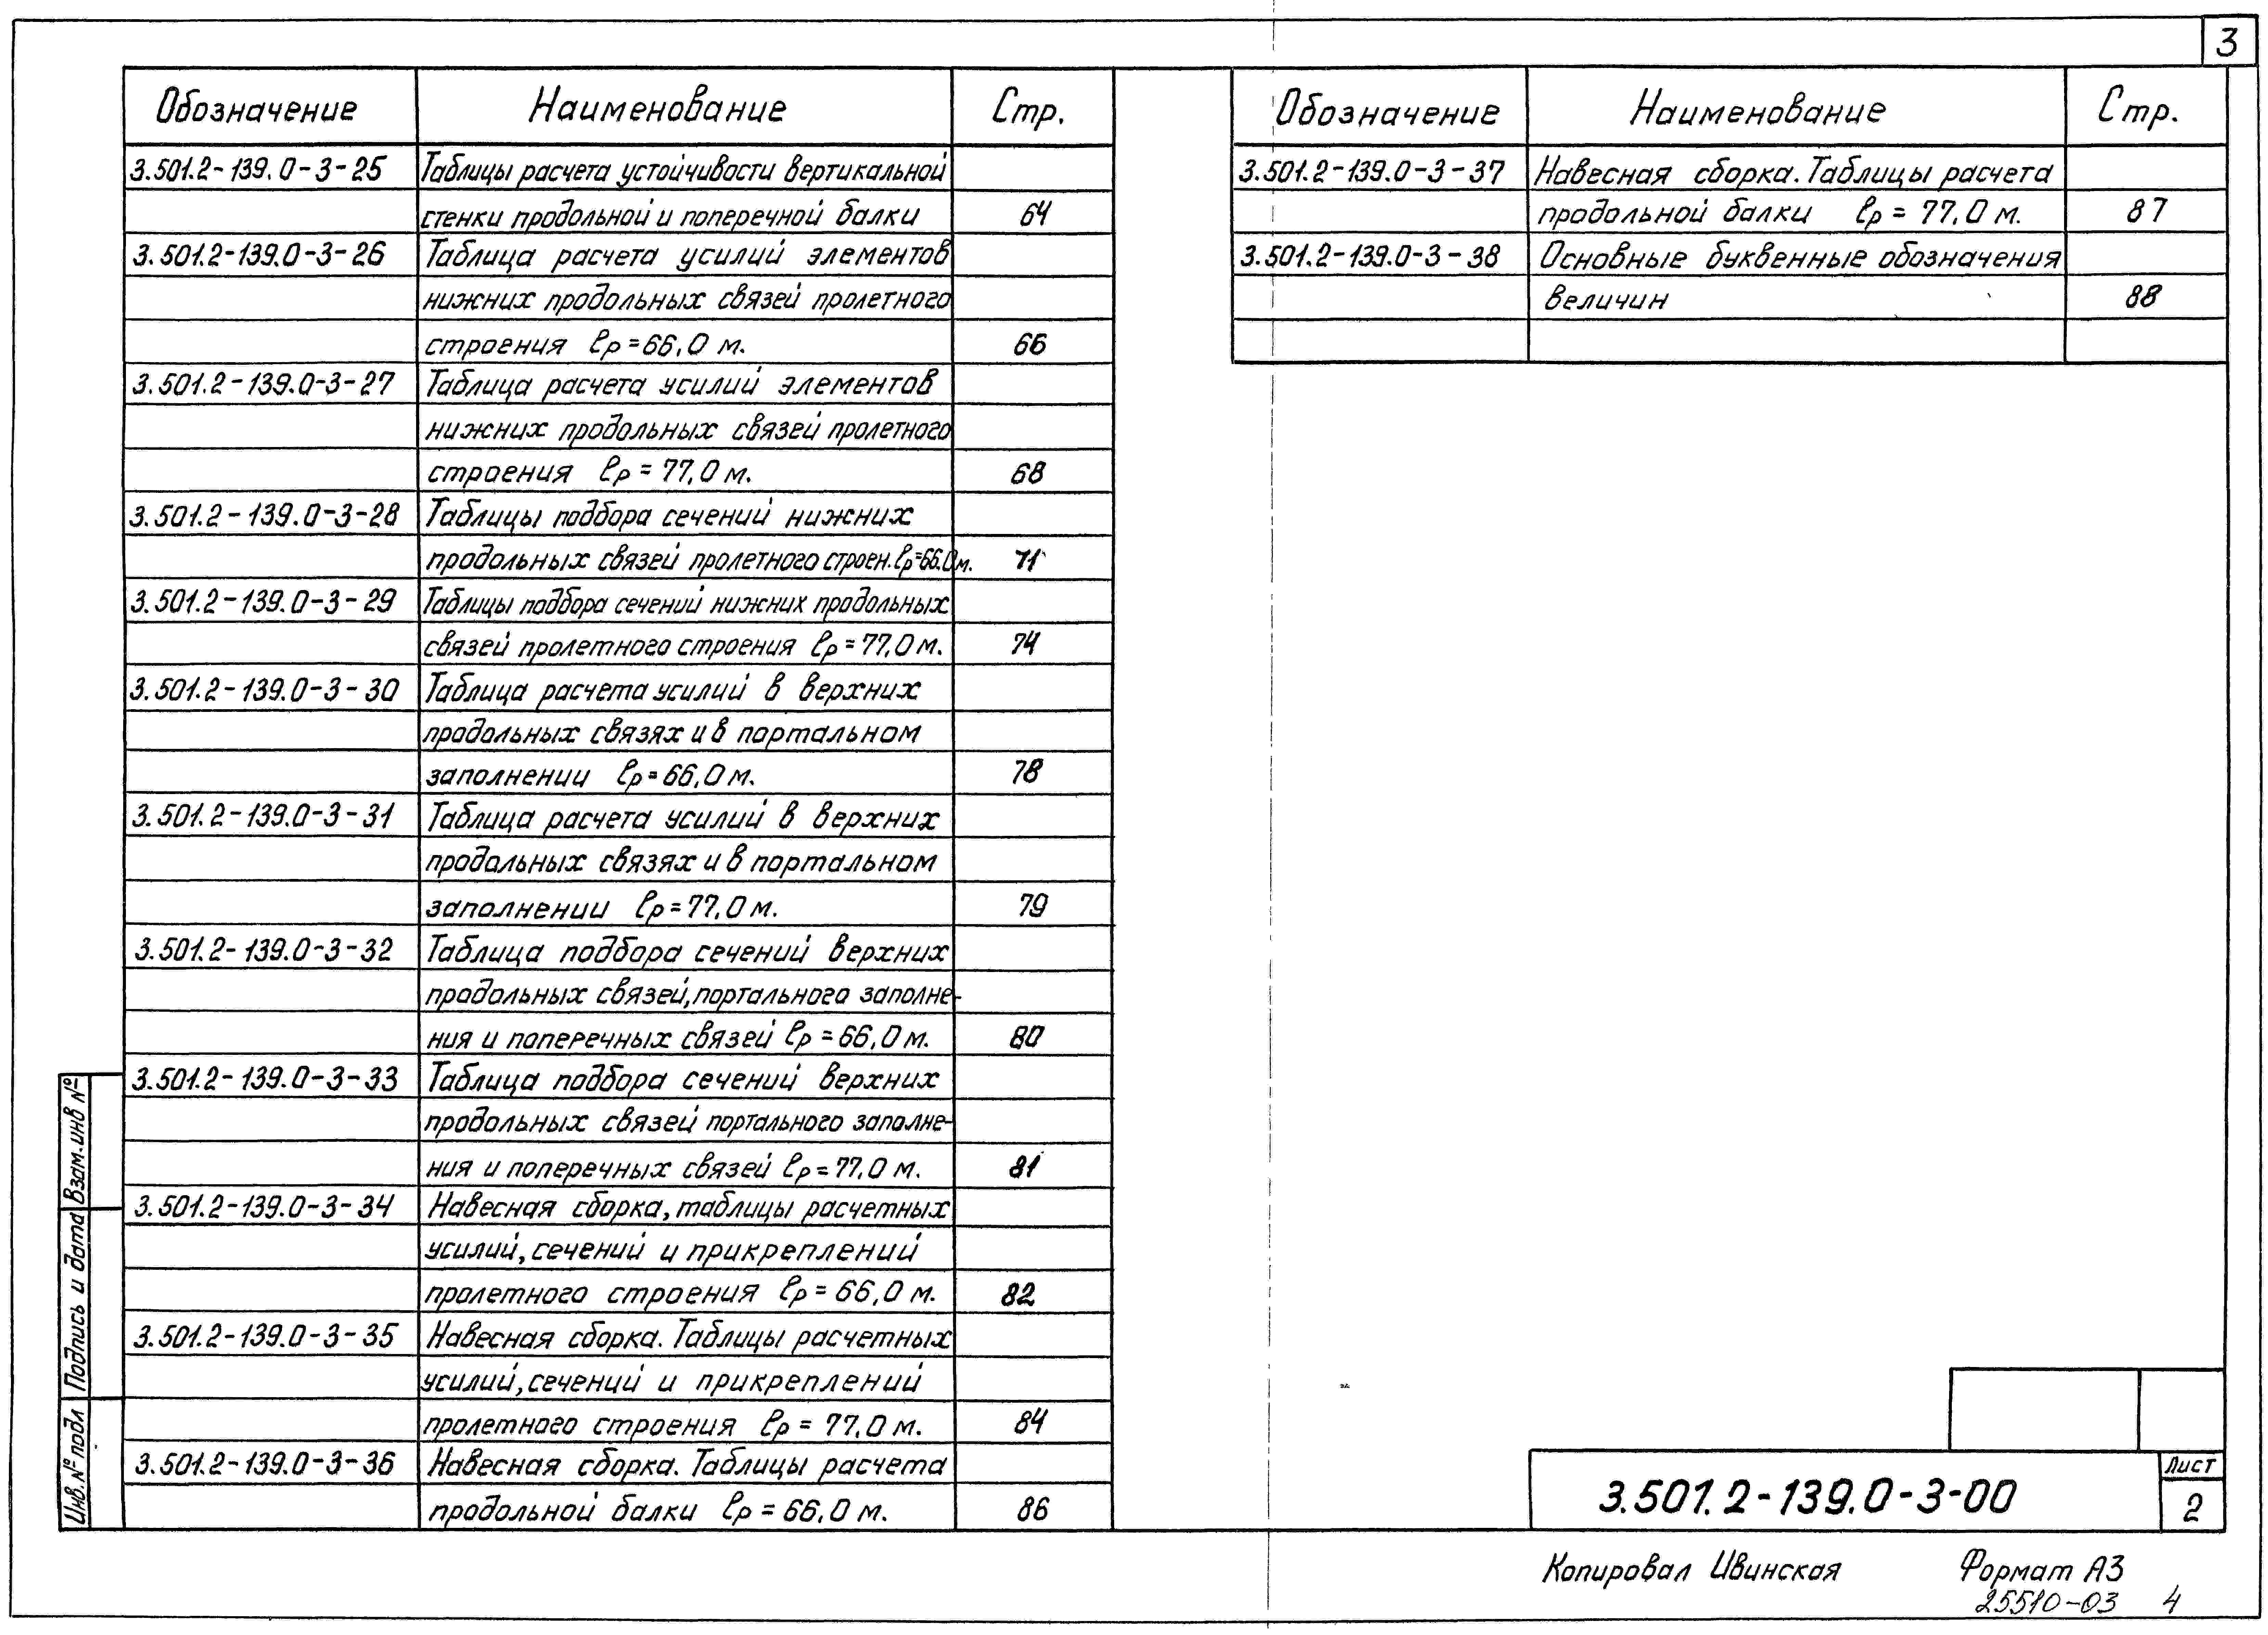 3
Обозначение Наименование Стр.
3.501.2-139.0-3-25 Таблицы расчета устойчивости вертикальной
стенки продольной и поперечной балки 64
3.501.2-139.0-3-26 Таблица расчета усилий элементов
нижних продольных связей пролетного
строения ℓр=66,0 м. 66
3.501.2-139.0-3-27 Таблица расчета усилий элементов
нижних продольных связей пролетного
строения ℓр = 77,0 м. 68
3.501.2-139.0-3-28 Таблицы подбора сечений нижних
продольных связей пролетного строен. ℓр=66.0м. 71
3.501.2-139.0-3-29 Таблицы подбора сечений нижних продольных
связей пролетного строения ℓр=77,0м. 74
3.501.2-139.0-3-30 Таблица расчета усилий в верхних
продольных связях и в портальном
заполнении ℓр=66,0м. 78
3.501.2-139.0-3-31 Таблица расчета усилий в верхних
продольных связях и в портальном
заполнении ℓр=77,0м. 79
3.501.2-139.0-3-32 Таблица подбора сечений верхних
продольных связей, портального заполне-
ния и поперечных связей ℓр=66,0м. 80
3.501.2-139.0-3-33 Таблица подбора сечений верхних
продольных связей портального заполне-
ния и поперечных связей ℓр=77,0м. 81
3.501.2-139.0-3-34 Навесная сборка, таблицы расчетных
усилий, сечений и прикреплений
пролетного строения ℓр=66,0м. 82
3.501.2-139.0-3-35 Навесная сборка. Таблицы расчетных
усилий, сечений и прикреплений
пролетного строения ℓр= 77,0м. 84
3.501.2-139.0-3-36 Навесная сборка. Таблицы расчета
продольной балки ℓр=66,0м. 86
Обозначение Наименование Стр.
3.501.2-139.0-3-37 Навесная сборка. Таблицы расчета
продольной балки ℓр = 77,0м. 87
3.501.2-139.0-3-38 Основные буквенные обозначения
величин 88
Взам.инв №
Подпись и дата
Инв.№ подл
3.501.2-139.0-3-00
Лист
2
Копировал Ивинская Формат А3
25510-03 4